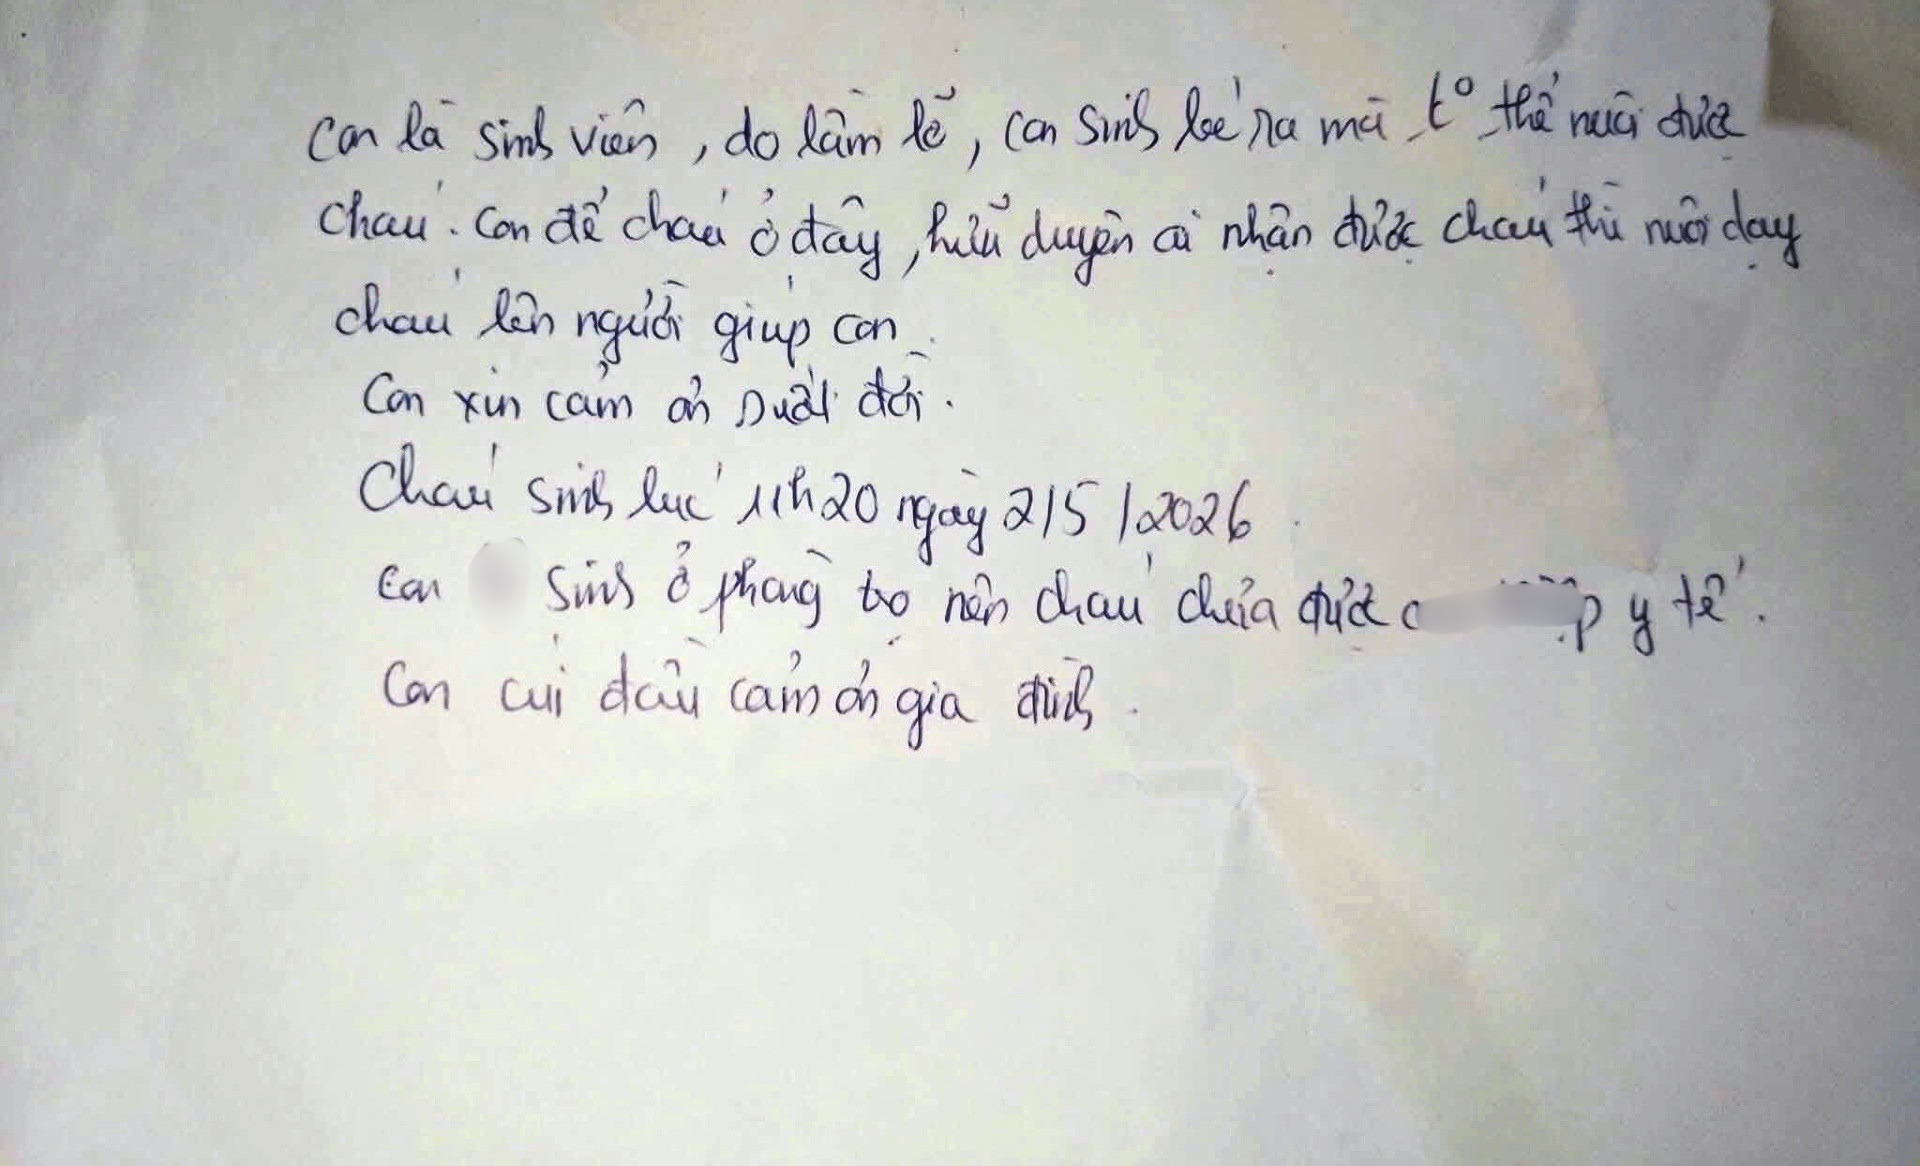 Con là sinh viên, do lầm lỡ, con sinh bé ra mà k° thể nuôi được
cháu. Con để cháu ở đây, hữu duyên ai nhận được cháu thì nuôi dạy
cháu lên người giúp con.
Con xin cảm ơn suốt đời.
Cháu sinh lúc 11h20 ngày 2/5/2026.
Con sinh ở phòng trọ nên cháu chưa được y tế.
Con cúi đầu cảm ơn gia đình.